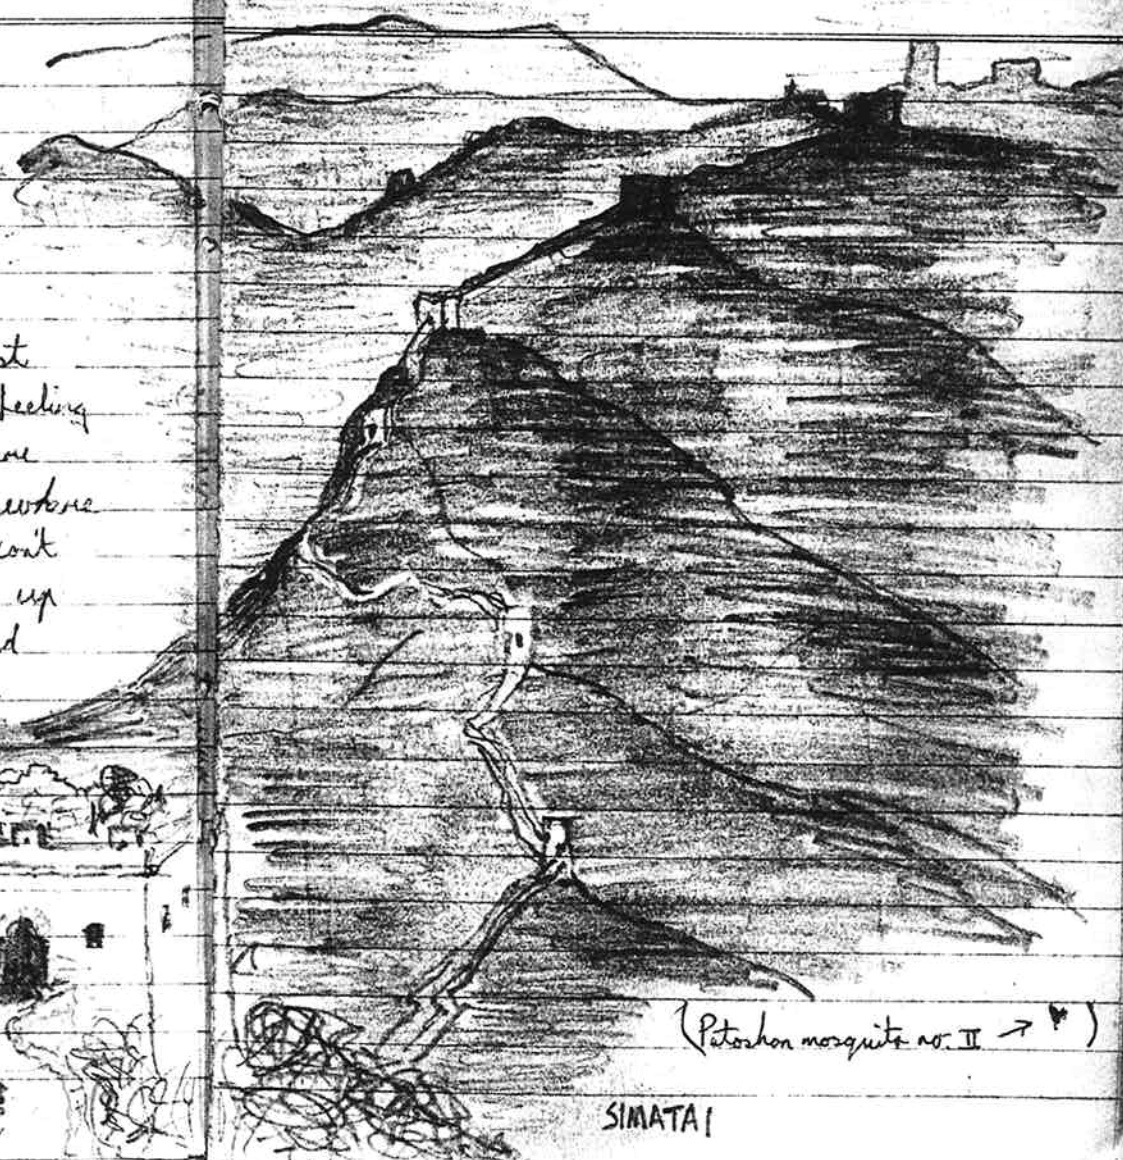 st
feeling
ewhere
con't
up
d
(Patoshan mosquito no. II → )
SIMATAI